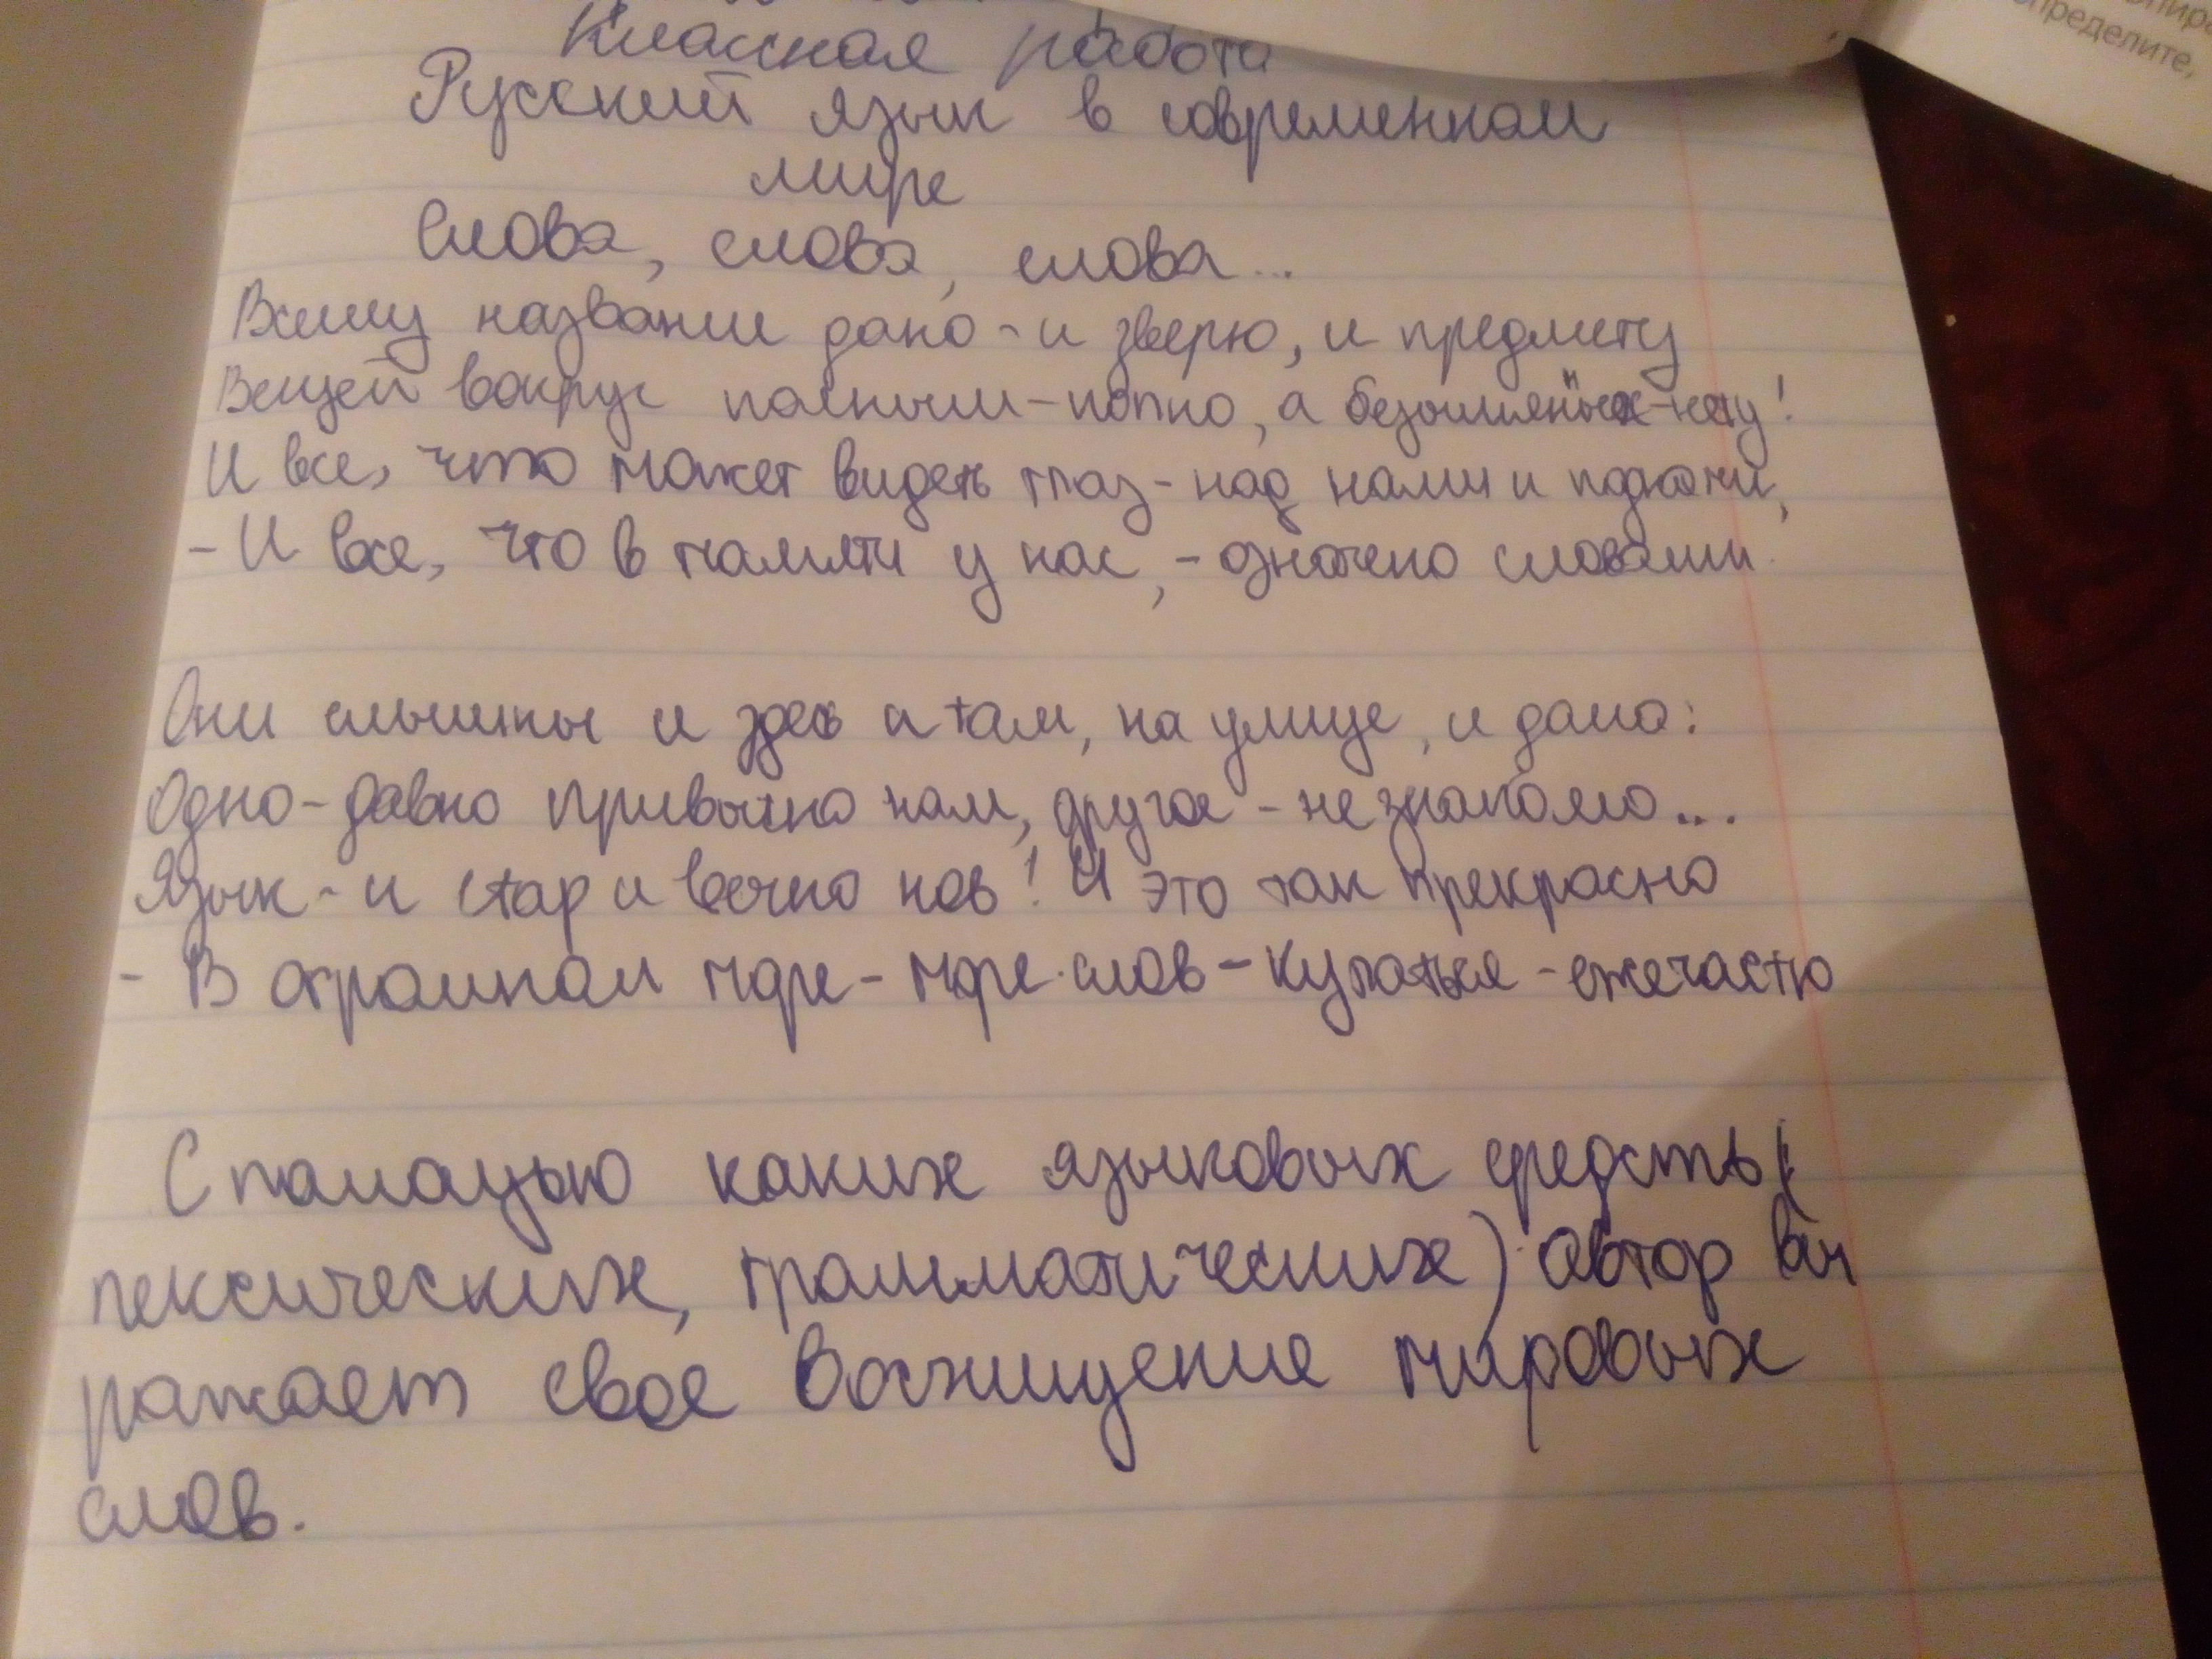 Классная работа
Русский язык в современном
мире
Слова, слова, слова...
Всему название дано - и зверю, и предмету
Вещей вокруг полным-полно, а безымянных-нету!
И все, что может видеть глаз - над нами и под нами,
- И все, что в памяти у нас, - означено словами.
Они слышны и здесь и там, на улице, и дома:
Одно - давно привычно нам, другое - незнакомо...
Язык - и стар и вечно нов! И это так прекрасно
- В огромном море - море слов - купаться - ежечастно
С помощью каких языковых средств (
лексических, грамматических) автор вы
ражает свое восхищение мировых
слов.
пределите,